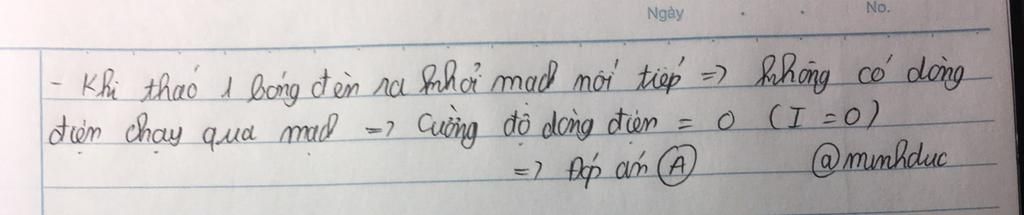 Ngày No.
- Khi tháo 1 bóng đèn ra khỏi mạch nối tiếp => không có dòng
điện chạy qua mạch => Cường độ dòng điện = 0 (I = 0)
=> Đáp án A @minhduc